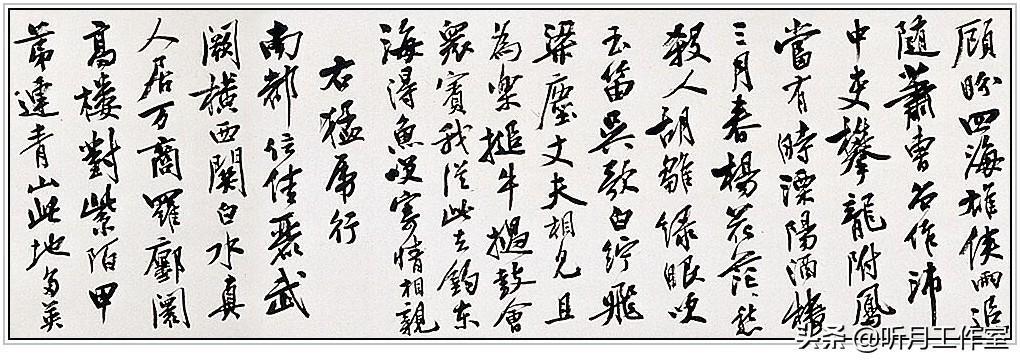 顾盼四海雄俠兩追
隨蕭曹曾作沛
中吏攀龍附鳳
當有時溧陽酒樓
三月春楊花茫茫愁
殺人胡雛綠眼吹
玉笛吳歌白紵飛
梁塵丈夫相見且
為樂搥牛撾鼓會
眾賓我從此去釣東
海得魚笑寄情相親
右猛虎行
南都信佳麗武
闕橫西關白水真
人居万商羅鄽闤
高樓對紫陌甲
第連青山此地多英
头条@听月工作室